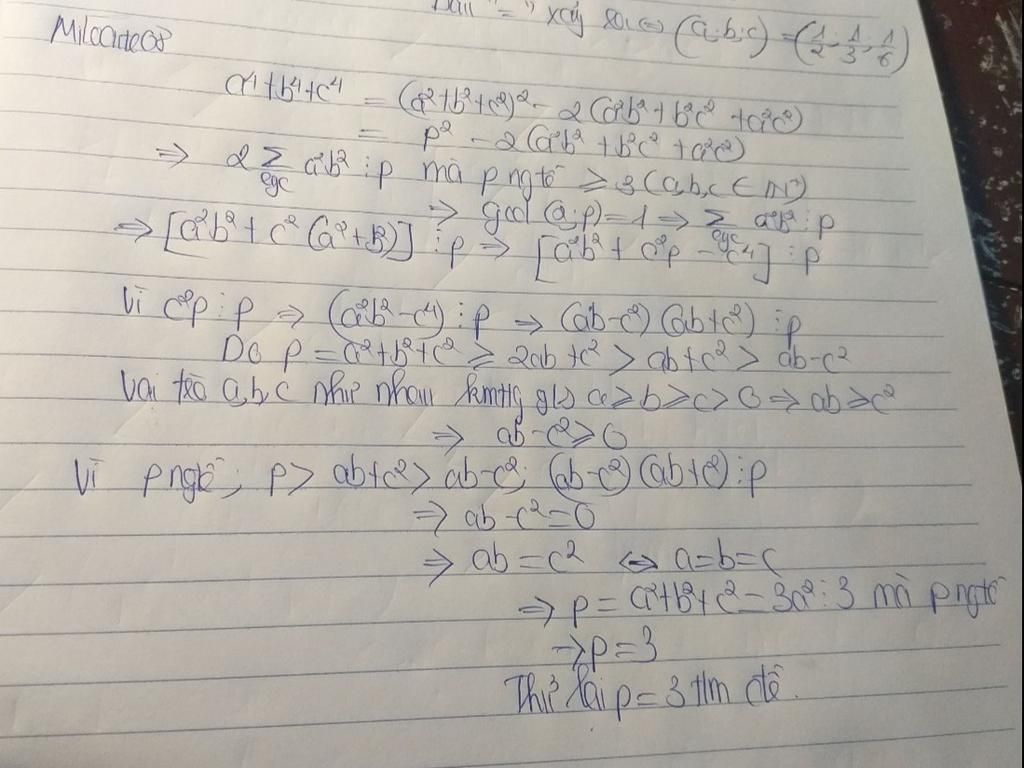 Dấu "=" xảy ra ⇔ (a;b;c) = (1/2; 1/3; 1/6)
a⁴+b⁴+c⁴ = (a²+b²+c²)² - 2(a²b²+b²c²+a²c²)
= p² - 2(a²b²+b²c²+a²c²)
⇒ 2 Σ a²b² ⋮ p mà p ngtố ≥ 3 (a,b,c ∈ N*)
cyc
⇒ gcd (2;p)=1 ⇒ Σ a²b² ⋮ p
cyc
⇒ [a²b² + c²(a²+b²)] ⋮ p ⇒ [a²b² + c²p - c⁴] ⋮ p
Vì c²p ⋮ p ⇒ (a²b²-c⁴) ⋮ p ⇒ (ab-c²)(ab+c²) ⋮ p
Do p = a²+b²+c² ≥ 2ab+c² > ab+c² > ab-c²
Vai trò a,b,c như nhau kmttq g/s a≥b≥c>0 ⇒ ab≥c²
⇒ ab-c²≥0
Vì p ngtố; p> ab+c²> ab-c²; (ab-c²)(ab+c²) ⋮ p
⇒ ab-c²=0
⇒ ab = c² ⇔ a=b=c
⇒ p = a²+b²+c² = 3a² ⋮ 3 mà p ngtố
→ p = 3
Thử lại p = 3 tlm đề.